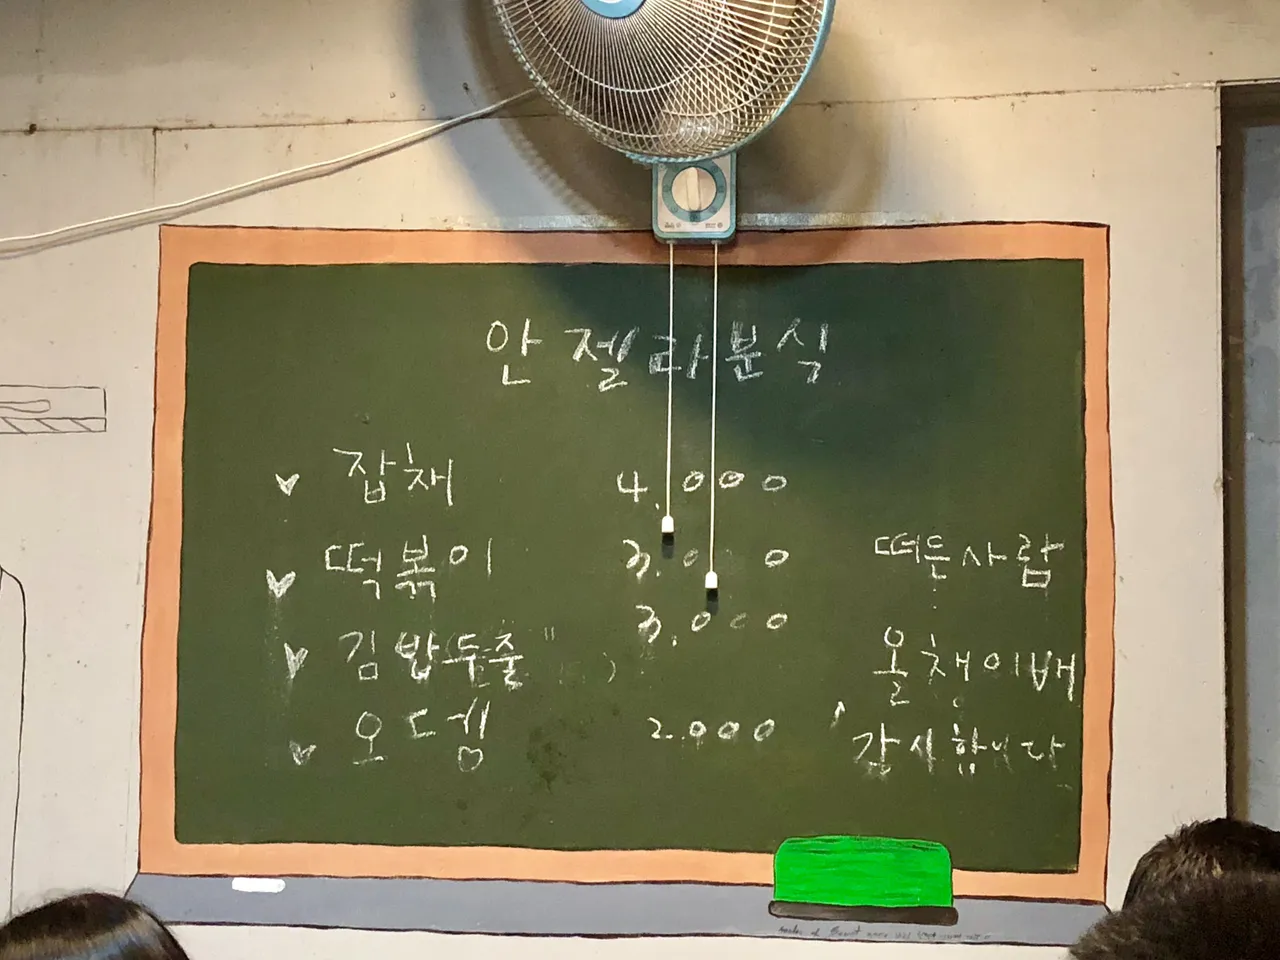 안젤라분식
잡채 4.000
떡볶이 3.000
김밥두줄" 3.000
오뎅 2.000
떠든사람
올챙이배
감사합니다